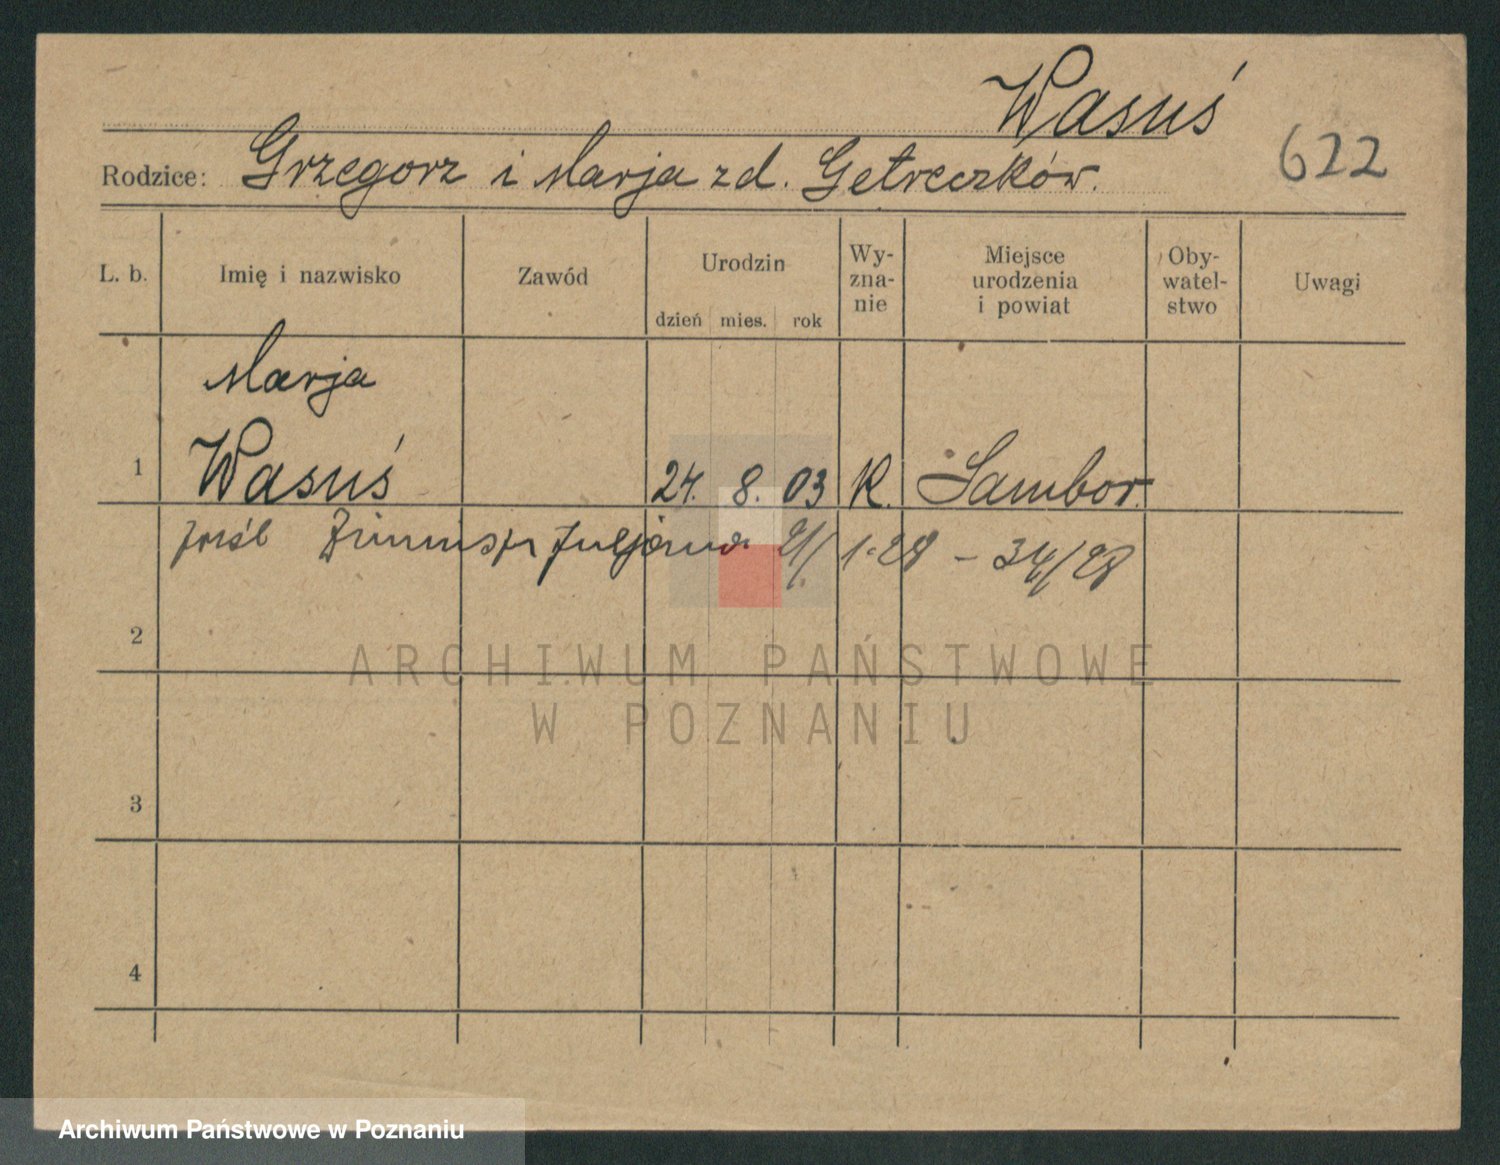 Wasuś
622
Rodzice: Grzegorz i Marja zd. Getreczków.
L. b. Imię i nazwisko Zawód Urodzin Wy-zna-nie Miejsce urodzenia i powiat Oby-watel-stwo Uwagi
dzień mies. rok
Marja
1 Wasuś 24. 8. 03 K. Sambor.
pośl Juljana 2/1 1.28 – 34/28
2
ARCHIWUM PAŃSTWOWE
W POZNANIU
3
4
Archiwum Państwowe w Poznaniu